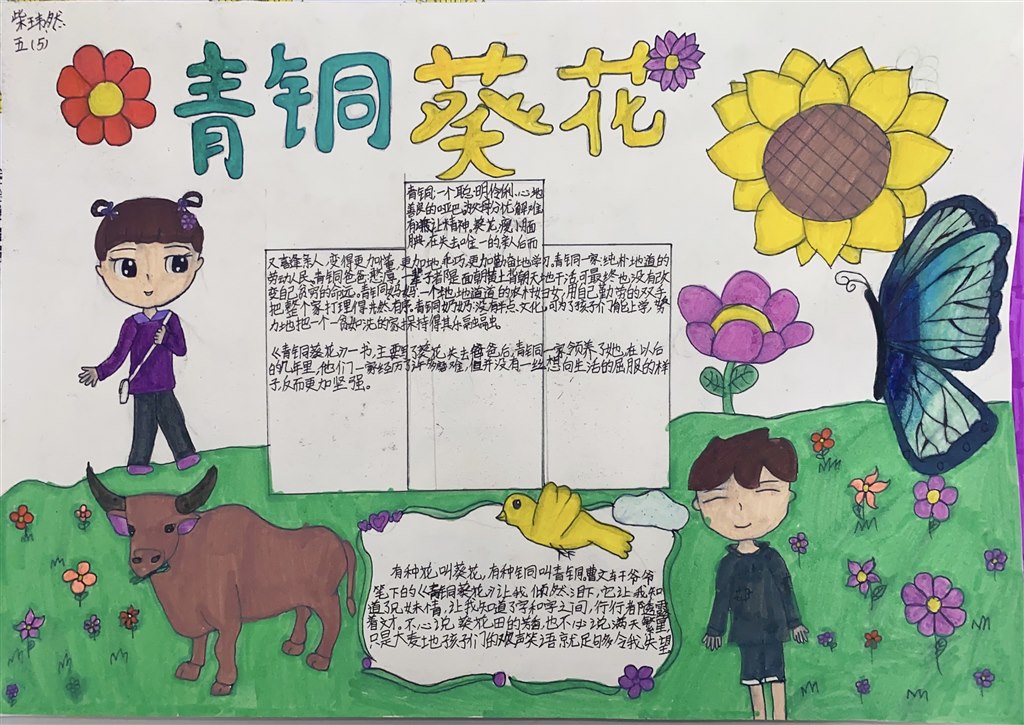 柴玮然
五(5)
青铜葵花
青铜:一个聪明伶俐,心地
善良的哑巴,为父母分忧解难
有谦让精神,葵花:瘦小腼
腆,在失去唯一的亲人后而
又喜逢亲人,变得更加懂,更加地乖巧,更加勤奋地学习,青铜一家:纯朴地道的
劳动人民,青铜爸爸 辈子都是面朝黄土背朝天地干活可最终也没有改
变自己贫穷的命运。青铜妈妈:一个地地道道的农村妇女,用自己勤劳的双手
把整个家打理得井然有序,青铜奶奶:没有半点文化,可为了孩子们能上学,努
力地把一个一贫如洗的家操持得其乐融融。
《青铜葵花》一书,主要写了葵花失去爸爸后,青铜一家领养了她,在以后
的几年里,他们一家经历了许多磨难,但并没有一丝想向生活的屈服的样
子反而更加坚强。
有种花叫葵花,有种铜叫青铜。曹文轩爷爷
笔下的《青铜葵花》让我倾然泪下,它让我知
道了兄妹情,让我知道了字和字之间,行行都透露
着才,不心说葵花田的 也不心说满天繁星
只是大麦地孩子们的欢声笑语就足够令我失望